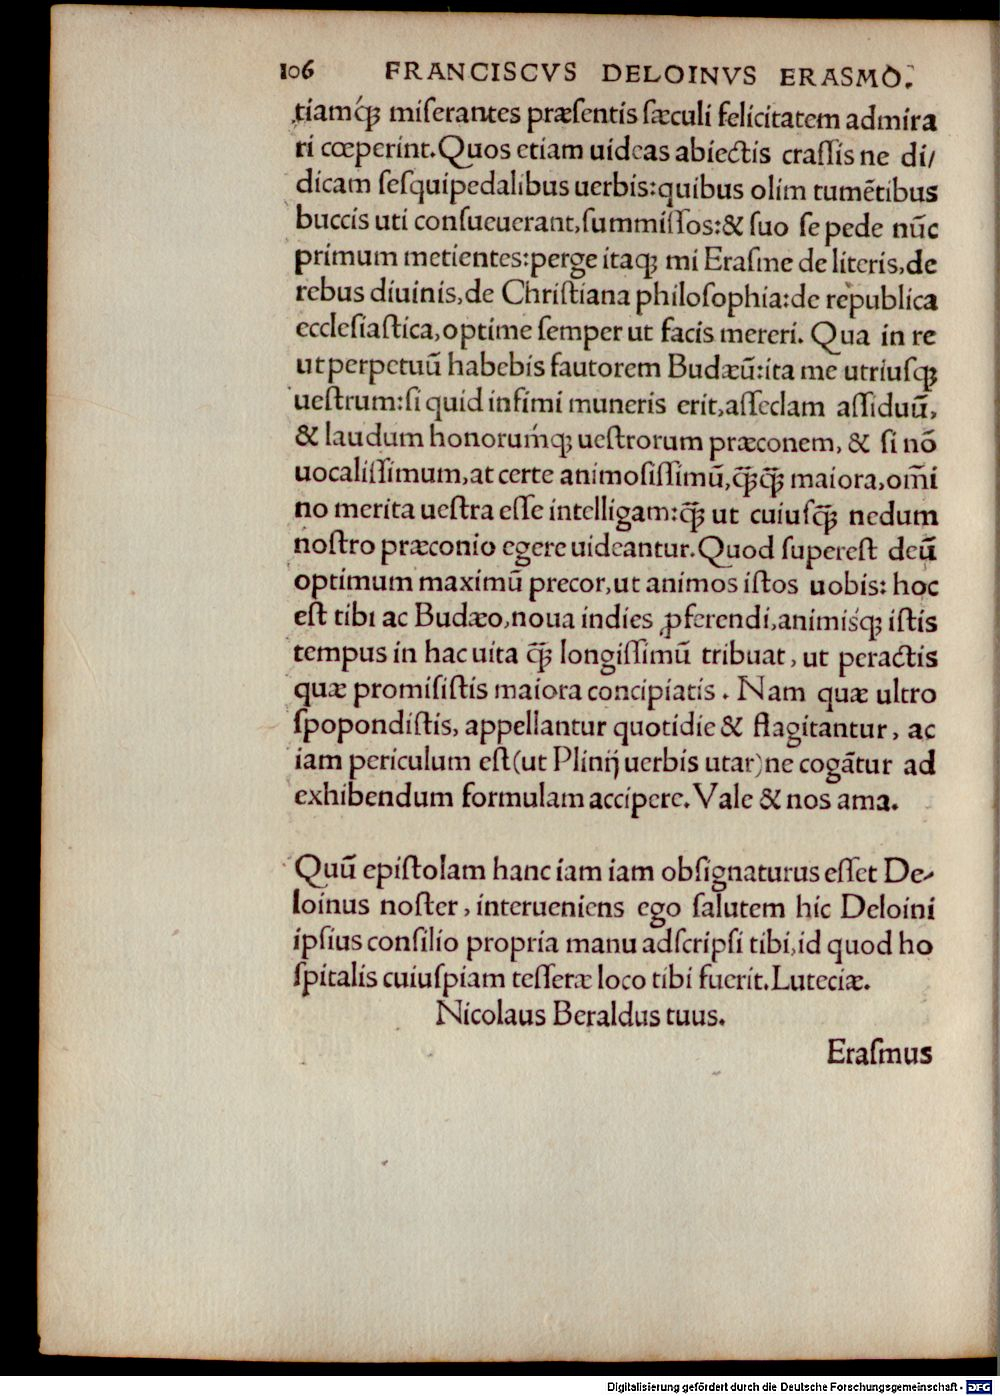 106 FRANCISCVS DELOINVS ERASMO.
tiamq́ꝫ miſerantes præſentis ſæculi felicitatem admira
ri cœperint.Quos etiam uideas abiectis craſſis ne di/
dicam ſeſquipedalibus uerbis:quibus olim tumẽtibus
buccis uti conſueuerant,ſummiſſos:& ſuo ſe pede nũc
primum metientes:perge itaqꝫ mi Eraſme de literis,de
rebus diuinis,de Chriſtiana philoſophia:de republica
eccleſiaſtica,optime ſemper ut facis mereri. Qua in re
ut perpetuũ habebis fautorem Budæũ:ita me utriuſqꝫ
ueſtrum:ſi quid infimi muneris erit,aſſeclam aſſiduũ,
& laudum honorumq́ꝫ ueſtrorum præconem, & ſi nõ
uocaliſſimum,at certe animoſiſſimũ,q̃ꝫq̃ꝫ maiora,om̃i
no merita ueſtra eſſe intelligam:q̃ꝫ ut cuiuſq̃ꝫ nedum
noſtro præconio egere uideantur.Quod ſupereſt deũ
optimum maximũ precor,ut animos iſtos uobis: hoc
eſt tibi ac Budæo,noua indies ꝓferendi,animisq́ꝫ iſtis
tempus in hac uita q̃ꝫ longiſſimũ tribuat, ut peractis
quæ promiſiſtis maiora concipiatis. Nam quæ ultro
ſpopondiſtis, appellantur quotidie & flagitantur, ac
iam periculum eſt(ut Plinij uerbis utar)ne cogãtur ad
exhibendum formulam accipere. Vale & nos ama.
Quũ epiſtolam hanc iam iam obſignaturus eſſet De/
loinus noſter, interueniens ego ſalutem hic Deloini
ipſius conſilio propria manu adſcripſi tibi,id quod ho
ſpitalis cuiuſpiam teſſeræ loco tibi fuerit.Luteciæ.
Nicolaus Beraldus tuus.
Eraſmus
Digitalisierung gefördert durch die Deutsche Forschungsgemeinschaft - DFG